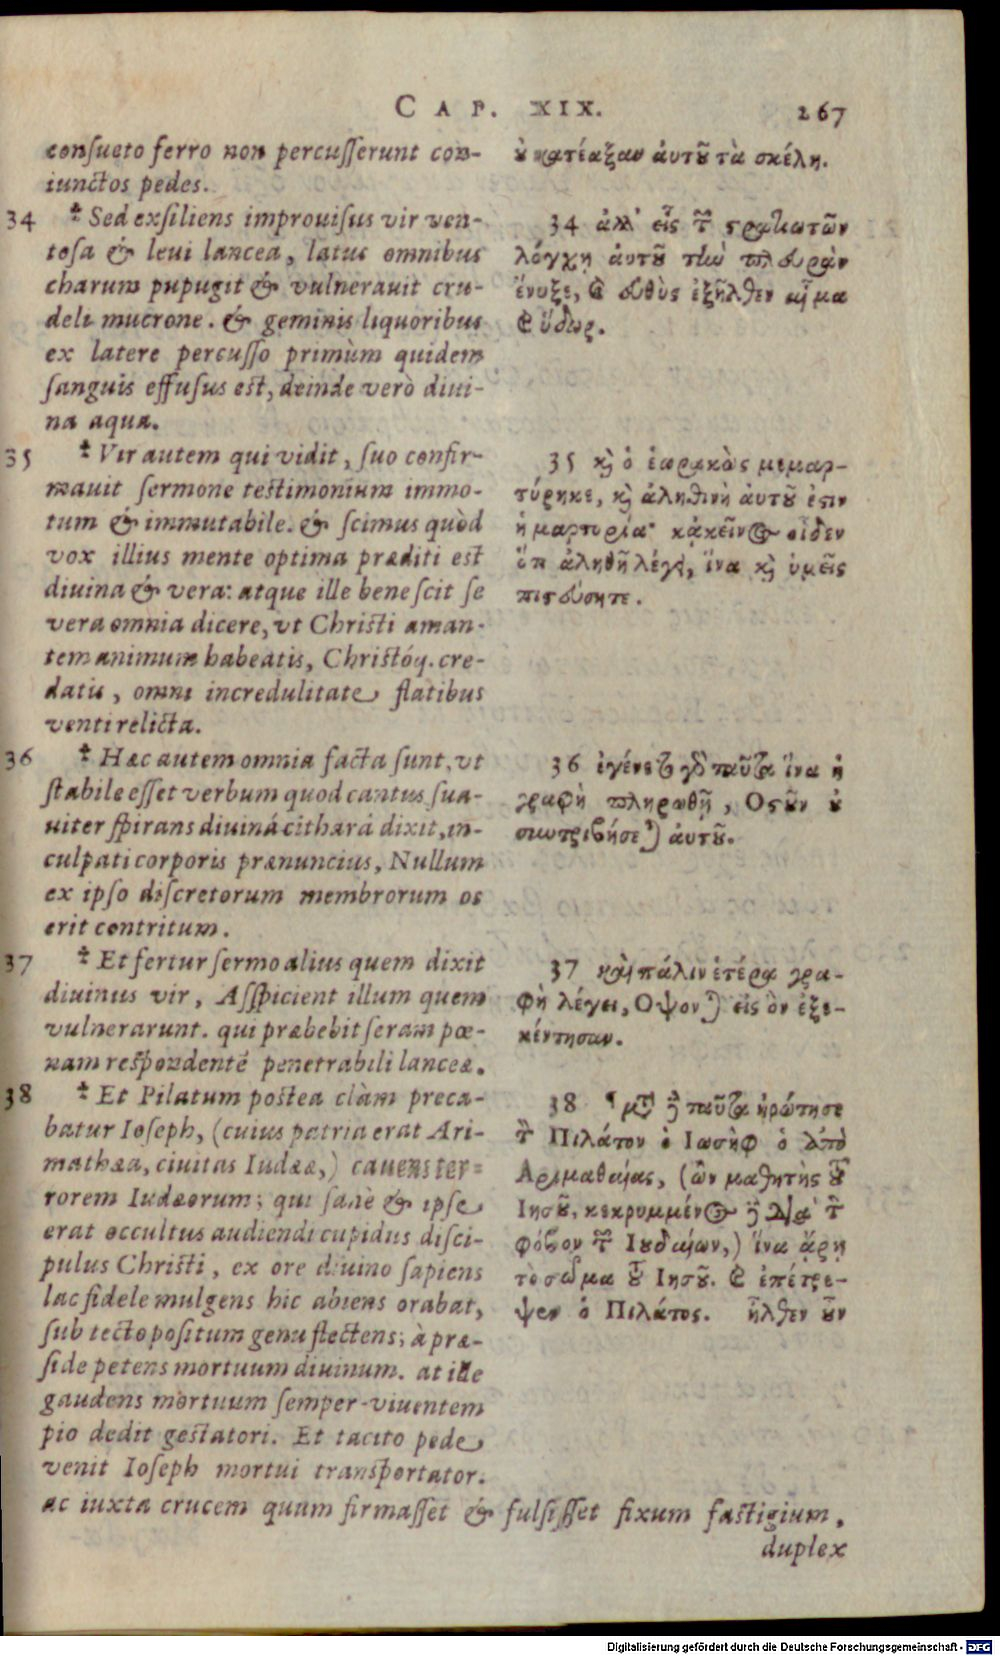 CAP. XIX. 267
consueto ferro non percusserunt con-
iunctos pedes.
34 Sed exsiliens improuisus vir ven-
tosa & leui lancea, latus omnibus
charum pupugit & vulnerauit cru-
deli mucrone. & geminis liquoribus
ex latere percusso primùm quidem
sanguis effusus est, deinde verò diui-
na aqua.
35 Vir autem qui vidit, suo confir-
mauit sermone testimonium immo-
tum & immutabile. & scimus quòd
vox illius mente optima præditi est
diuina & vera: atque ille bene scit se
vera omnia dicere, vt Christi aman-
tem animum habeatis, Christóq. cre-
datis, omni incredulitate flatibus
venti relicta.
36 Hæc autem omnia facta sunt, vt
stabile esset verbum quod cantus sua-
uiter spirans diuinâ citharâ dixit, in-
culpati corporis prænuncius, Nullum
ex ipso discretorum membrorum os
erit contritum.
37 Et fertur sermo alius quem dixit
diuinus vir, Aspicient illum quem
vulnerarunt. qui præbebit seram pœ-
nam respondentẽ penetrabili lanceæ.
38 Et Pilatum postea clàm preca-
batur Ioseph, (cuius patria erat Ari-
mathæa, ciuitas Iudææ,) cauens ter-
rorem Iudæorum; qui sanè & ipse
erat occultus audiendi cupidus disci-
pulus Christi, ex ore diuino sapiens
lac fidele mulgens hic abiens orabat,
sub tecto positum genu flectens; à præ-
side petens mortuum diuinum. at ille
gaudens mortuum semper-viuentem
pio dedit gestatori. Et tacito pede
venit Ioseph mortui transportator.
ac iuxta crucem quum firmasset & fulsisset fixum fastigium,
duplex
οὐ κατέαξαν αὐτοῦ τὰ σκέλη.
34 ἀλλ' εἷς τῶν στρατιωτῶν
λόγχῃ αὐτοῦ τὴν πλευρὰν
ἔνυξε, καὶ εὐθὺς ἐξῆλθεν αἷμα
καὶ ὕδωρ.
35 καὶ ὁ ἑωρακὼς μεμαρ-
τύρηκε, καὶ ἀληθινὴ αὐτοῦ ἐστιν
ἡ μαρτυρία· κἀκεῖνος οἶδεν
ὅτι ἀληθῆ λέγει, ἵνα καὶ ὑμεῖς
πιστεύσητε.
36 ἐγένετο γὰρ ταῦτα ἵνα ἡ
γραφὴ πληρωθῇ, Οστοῦν οὐ
συντριβήσεται αὐτοῦ.
37 καὶ πάλιν ἑτέρα γρα-
φὴ λέγει, Οψονται εἰς ὃν ἐξε-
κέντησαν.
38 ¶ μετὰ δὲ ταῦτα ἠρώτησε
τὸν Πιλάτον ὁ Ιωσὴφ ὁ ἀπὸ
Αριμαθαίας, (ὢν μαθητὴς τοῦ
Ιησοῦ, κεκρυμμένος δὲ διὰ τὸν
φόβον τῶν Ιουδαίων,) ἵνα ἄρῃ
τὸ σῶμα τοῦ Ιησοῦ. καὶ ἐπέτρε-
ψεν ὁ Πιλάτος. ἦλθεν οὖν
Digitalisierung gefördert durch die Deutsche Forschungsgemeinschaft - DFG